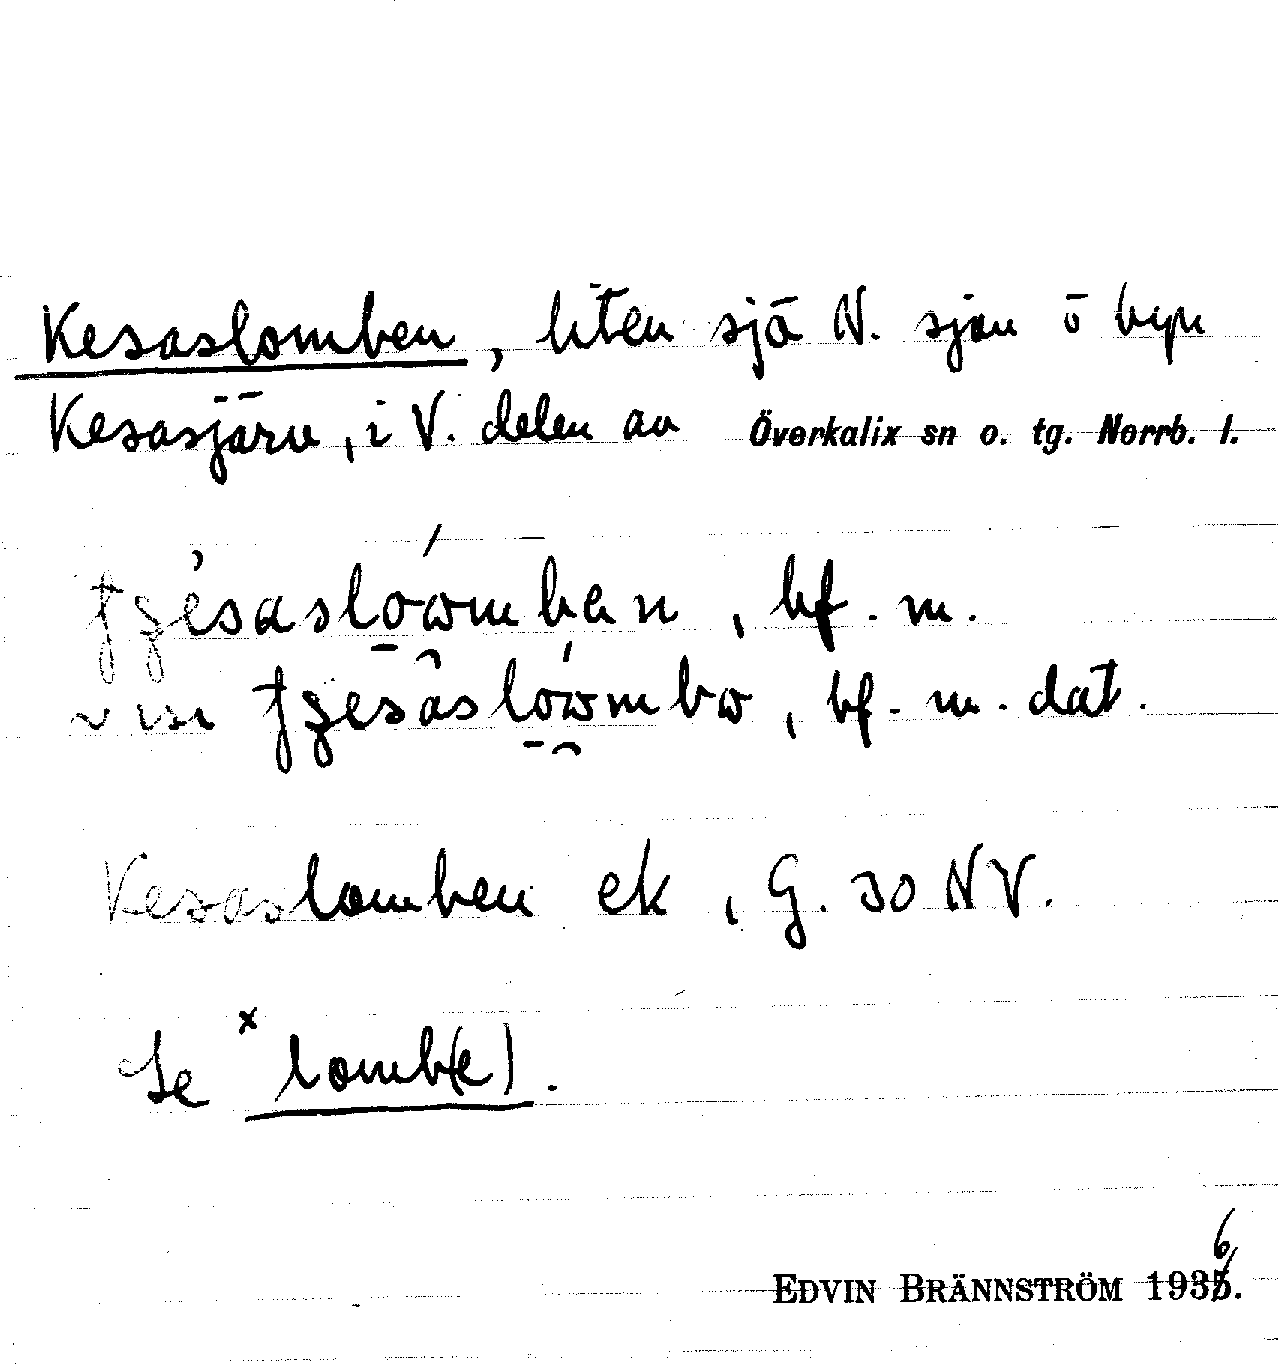 Kesaslomben, liten sjö N. sjön o byn
Kesasjärv, i V. delen av Överkalix sn o. tg. Norrb. l.
, bf. m.
, bf. m. dat.
Kesaslomben ek, G. 30 NV.
Se × lomb(e).
6
EDVIN BRÄNNSTRÖM 1935.